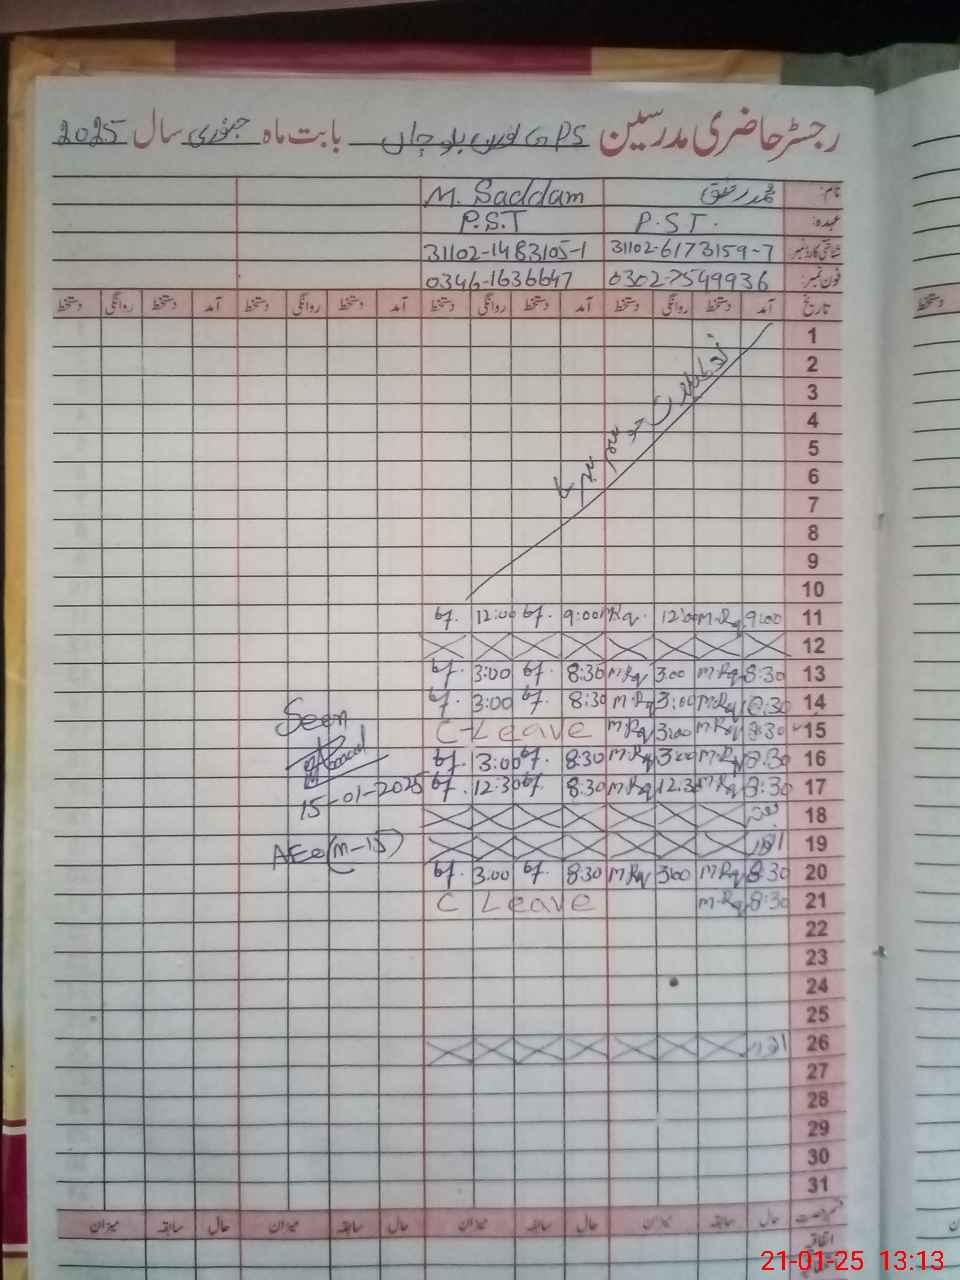 رجسٹر حاضری مدرسین GPS بابت ماہ جنوری سال 2025
نام: محمد رفیق M. Saddam
عہدہ: P.S.T. P.S.T
شناختی کارڈ نمبر 31102-6173159-7 31102-1483105-1
فون نمبر: 0302-7549936 0346-1636647
تاریخ آمد دستخط روانگی دستخط آمد دستخط روانگی دستخط آمد دستخط روانگی دستخط آمد دستخط روانگی دستخط
1
2
3
4
5
6
7
8
9
10
تعطیلات موسم سرما
11 9:00 M.Rq 12:00 M.Rq 9:00 12:00
12
13 8:30 M.Rq 3:00 M.Rq 8:30 3:00
14 8:30 M.Rq 3:00 M.Rq 8:30 3:00
15 8:30 M.Rq 3:00 M.Rq C-Leave
16 8:30 M.Rq 3:00 M.Rq 8:30 3:00
17 8:30 M.Rq 12:30 M.Rq 8:30 12:30
18 ہفتہ
19 اتوار
20 8:30 M.Rq 3:00 M.Rq 8:30 3:00
21 8:30 M.Rq C Leave
22
23
24
25
26 اتوار
27
28
29
30
31
Seen
15-01-2025
AEO (M-15)
حال سابقہ میزان حال سابقہ میزان حال سابقہ میزان حال سابقہ میزان
اتفاقیہ
21-01-25 13:13